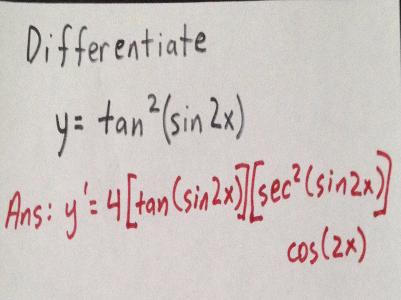 Differentiate
y= tan²(sin2x)
Ans: y'= 4[tan(sin2x)][sec²(sin2x)]
cos(2x)